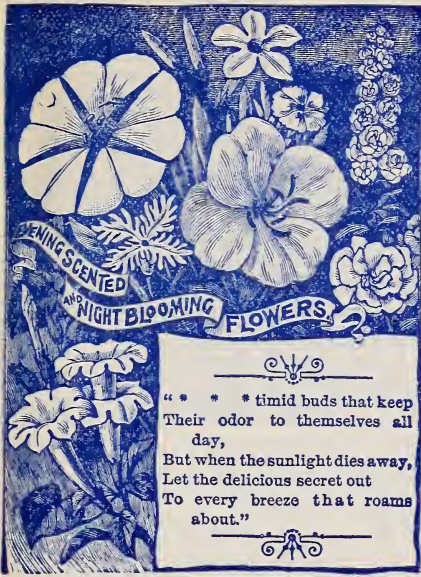 EVENING SCENTED
AND NIGHT BLOOMING FLOWERS.
“ * * * timid buds that keep
Their odor to themselves all
day,
But when the sunlight dies away,
Let the delicious secret out
To every breeze that roams
about.”